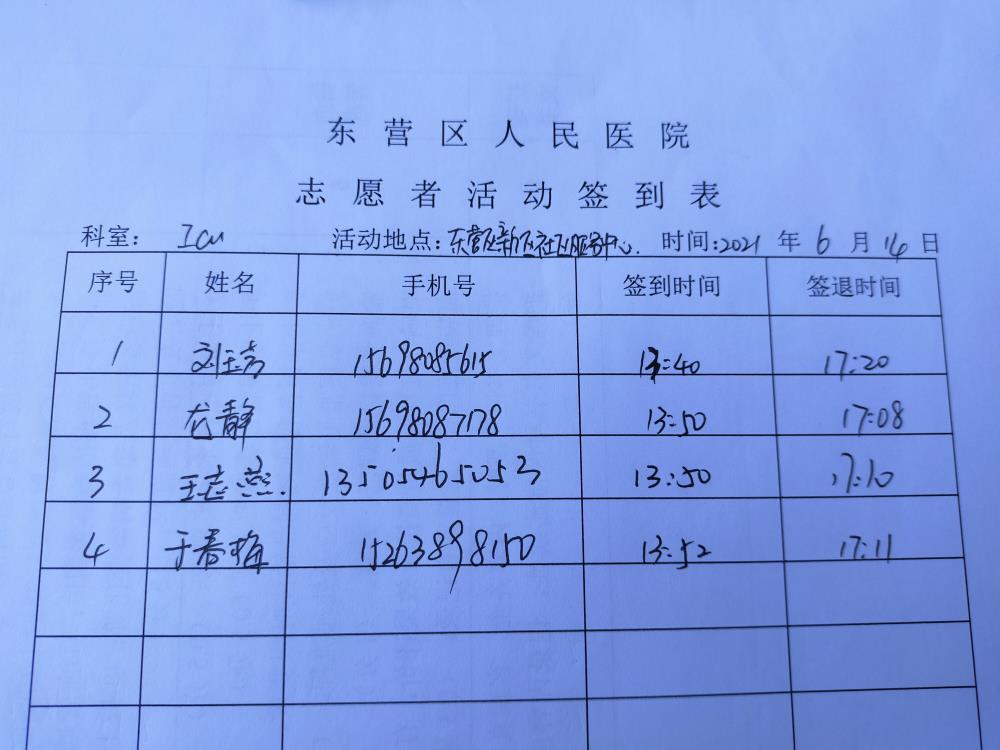 东营区人民医院
志愿者活动签到表
科室： Icu 活动地点：东营区新区社区服务中心. 时间：2021 年 6 月 14 日
序号 姓名 手机号 签到时间 签退时间
1 刘玉芳 15698085615 13:40 17:20
2 尤静 15698087178 13:50 17:08
3 王志燕. 13505465053 13:50 17:10
4 于春梅 15263898150 13:52 17:11